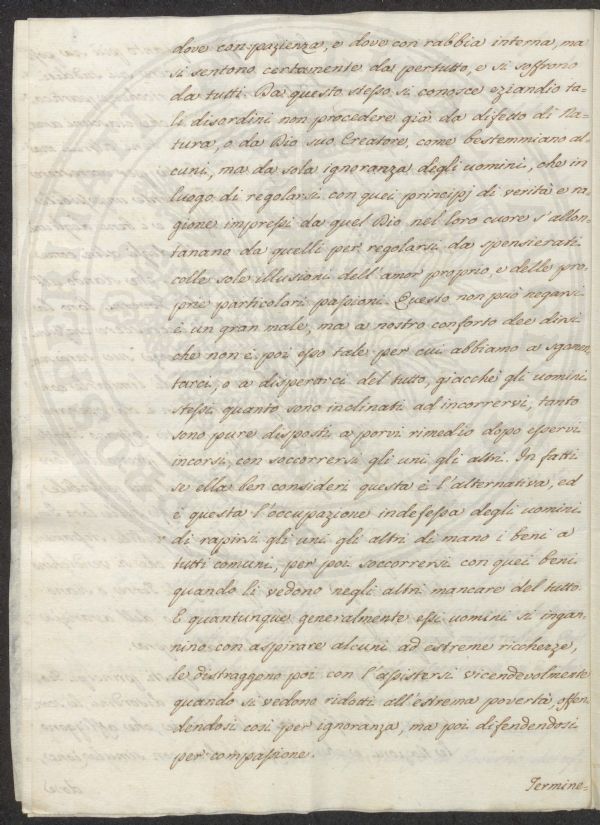 dove con pazienza, e dove con rabbia interna, ma
si sentono certamente da pertutto, e si soffrono
da tutti. Da questo stesso si conosce eziandio ta-
li disordini non procedere già da difetto di Na-
tura, o da Dio suo Creatore, come bestemmiano al-
cuni, ma da sola ignoranza degli uomini, che in
luogo di regolarsi con quei principj di verità e ra-
gione impressi da quel Dio nel loro cuore s'allon-
tanano da quelli per regolarsi da spensierati
colle sole illusioni dell'amor proprio, e delle pro-
prie particolari passioni. Questo non può negarsi
è un gran male, ma a nostro conforto dee dirsi
che non è poi esso tale per cui abbiamo a sgomen-
tarci, o a disperarci del tutto, giacchè gli uomini
stessi quanto sono inclinati ad incorrervi, tanto
sono pure disposti a porvi rimedio dopo esservi
incorsi, con soccorrersi gli uni gli altri. In fatti
se ella ben consideri questa è l'alternativa, ed
è questa l'occupazione indefessa degli uomini
di rapirsi gli uni gli altri di mano i beni a
tutti comuni, per poi soccorrersi con quei beni
quando li vedono negli altri mancare del tutto.
E quantunque generalmente essi uomini si ingan-
nino con aspirare alcuni ad estreme ricchezze,
le distraggono poi con l'assistersi vicendevolmente
quando si vedono ridotti all'estrema povertà, offen-
dendosi così per ignoranza, ma poi difendendosi
per compassione.
Termine-